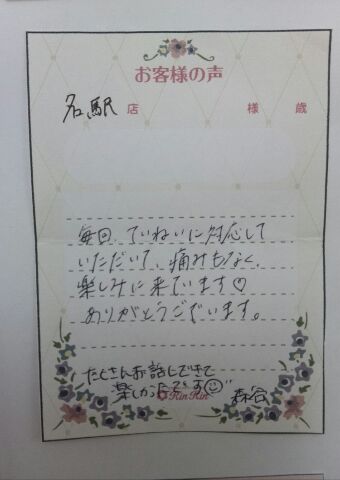 お客様の声
名駅 店 様 歳
毎回、ていねいに対応して
いただいて、痛みもなく、
楽しみに来ています♡
ありがとうございます。
たくさんお話しできて
楽しかったです☺
RinRin
森谷